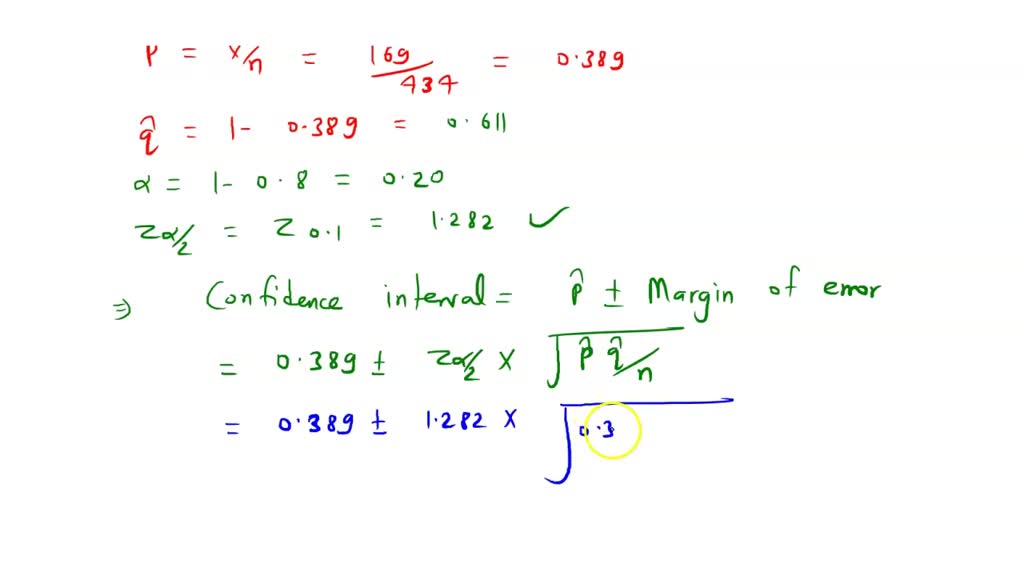 p = x/n = 169/434 = 0.389
q̂ = 1- 0.389 = 0.611
α = 1- 0.8 = 0.20
zα/2 = z 0.1 = 1.282 ✓
⇒ Confidence interval = p̂ ± Margin of error
= 0.389 ± zα/2 × √p̂ q̂/n
= 0.389 ± 1.282 × √0.3